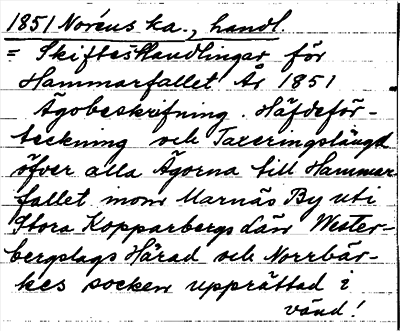 1851 Noréus ka., handl.
= Skifteshandlingar för
Hammarfallet År 1851
Ägobeskrifning. Häfdeför-
teckning och Taxeringslängd
öfver alla Ägorna till Hammar-
fallet inom Marnäs By uti
Stora Kopparbergs Län Wester-
bergslags Härad och Norrbär-
kes socken upprättad i
vänd!